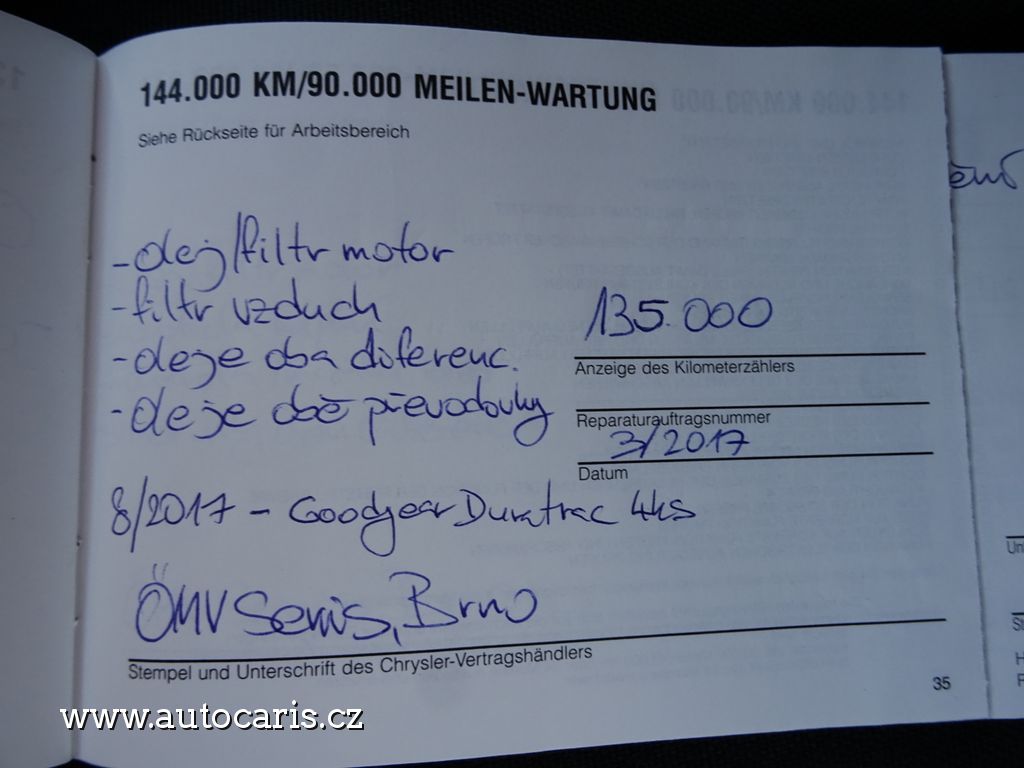 144.000 KM/90.000 MEILEN-WARTUNG
Siehe Rückseite für Arbeitsbereich
- olej/filtr motor
- filtr vzduch
- oleje oba diferenc.
- oleje obě převodovky
135.000
Anzeige des Kilometerzählers
Reparaturauftragsnummer
3/2017
Datum
8/2017 - Goodjear Duratrac 4ks
ÖMV Servis, Brno
Stempel und Unterschrift des Chrysler-Vertragshändlers
35
www.autocaris.cz